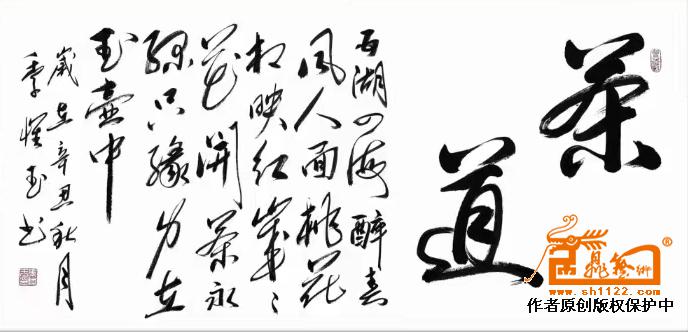 茶道
西湖四海醉春
风人面桃花
相映红岁々
花開茶永
绿只緣身在
玉壶中
歲在辛丑秋月
玉书
www.sh1122.com
作者原创版权保护中